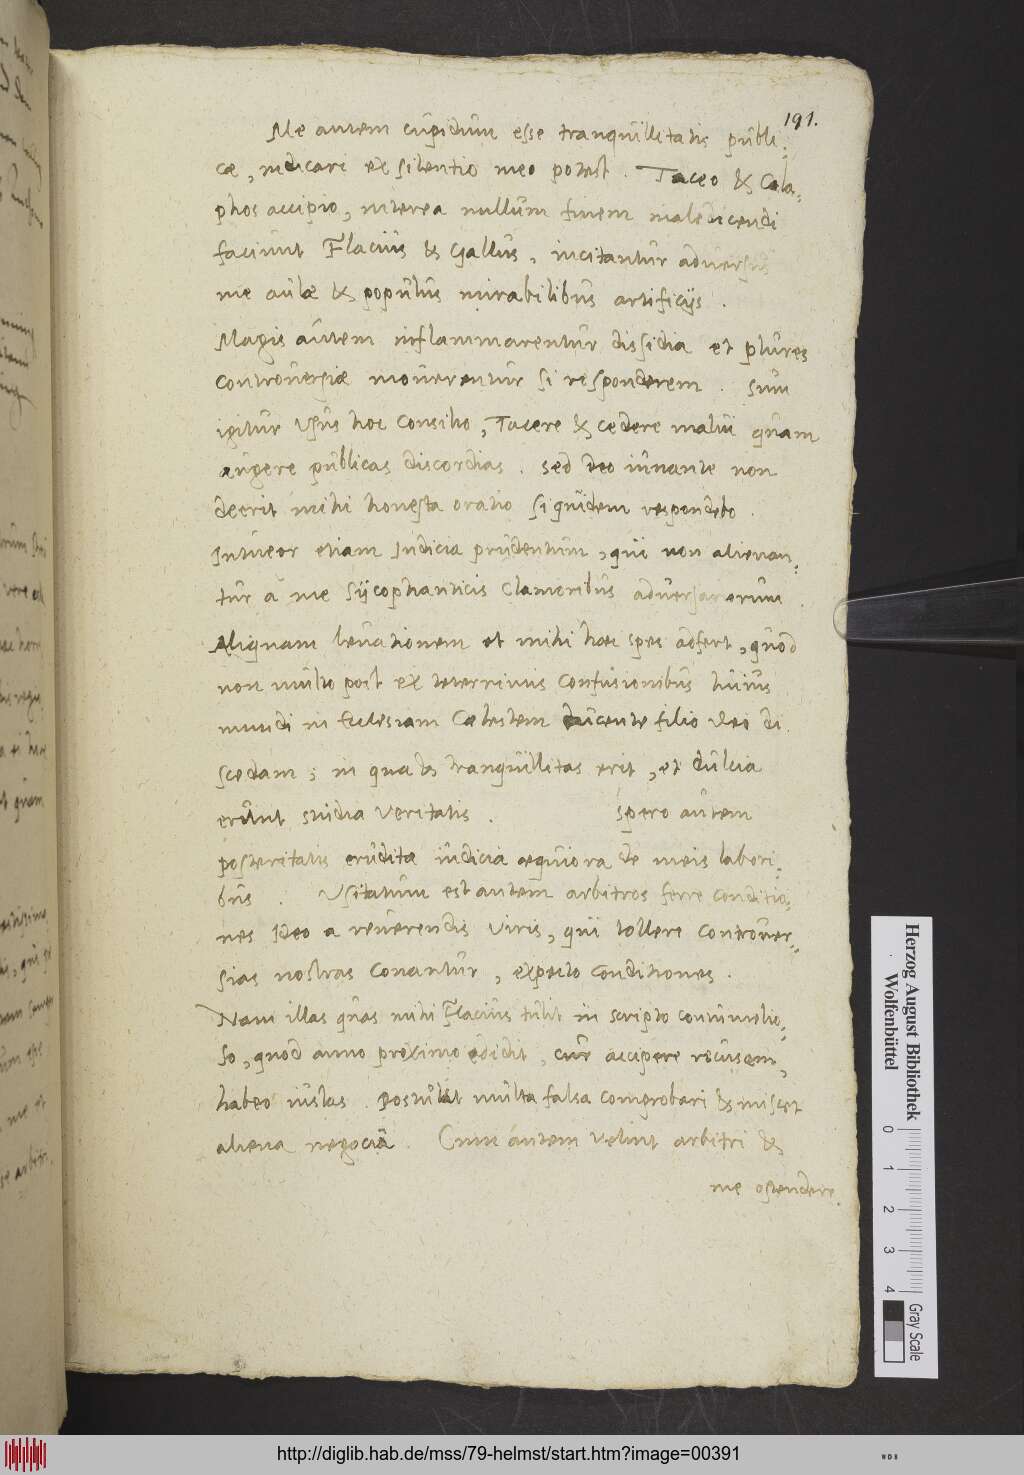 191.
Me autem cupidum esse tranquillitatis publi:
cæ, indicare ex silentio meo potest. Taceo & Cola:
phos accipio, interea nullum finem maledicendi
faciunt Flacius & Gallus, incitantur adversus
me aulæ & populus mirabilibus artificijs.
Magis autem inflammarentur dissidia et plures
controversiæ moverentur si responderem. Sum
igitur usus hoc Consilio, Tacere & cedere malui quam
augere publicas discordias. sed deo iuvante non
deerit mihi honesta oratio siquidem respondebo.
Intueor etiam Iudicia prudentum, qui non alienan:
tur à me Sycophanticis Clamoribus adversariorum.
Aliquam levationem et mihi hæc spes adfert, quod
non multo post ex teterrimis Confusionibus huius
mundi in Ecclesiam Cœlestem ducente filio Dei di
scedam; in qua & tranquillitas erit, et dulcia
erunt studia veritatis. Spero autem
posteritatis eruditæ iudicia æquiora de meis labori:
bus. Usitatum est autem arbitros ferre conditio:
nes Ideo a reverendis viris, qui tollere Controver:
sias nostras Conantur, expecto Conditiones.
Nam illas quas mihi Flacius tulit in scripto contumelio:
so, quod anno proximo edidit, cur accipere recusem,
habeo iustas. Postulat multa falsa comprobari & miscet
aliena negocia. Cum autem velint arbitri &
me ostendere
Herzog August Bibliothek
Wolfenbüttel
0 1 2 3 4
Gray Scale
http://diglib.hab.de/mss/79-helmst/start.htm?image=00391
WDB